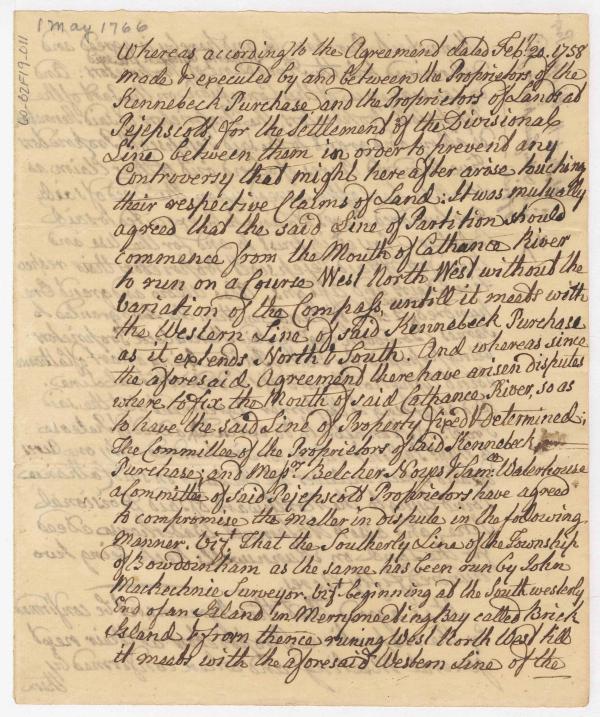 1 May 1766
60-02F19-011
Whereas according to the Agreement dated Feby. 20. 1758
made & executed by and between the Proprietors of the
Kennebeck Purchase and the Proprietors of Lands at
Pejepscott for the Settlement of the Divisional
Line between them in order to prevent any
Controversy that might hereafter arise touching
their respective Claims of Land: It was mutually
agreed that the said Line of Partition should
commence from the Mouth of Cathance River
to run on a Course West North West without the
Variation of the Compass, untill it meets with
the Western Line of said Kennebeck Purchase
as it extends North & South. And whereas since
the aforesaid Agreement there have arisen disputes
where to fix the Mouth of said Cathance River, so as
to have the said Line of Property fixed & Determined;
The Committee of the Proprietors of said Kennebeck
Purchase; and Messrs. Belcher Noyes & Saml. Waterhouse
a Committee of said Pejepscott Proprietors have agreed
to compromise the matter in dispute in the following
manner. vizt. That the Southerly Line of the Township
of Bowdoinham as the same has been run by John
Mackechnie Surveyor. vizt. beginning at the Southwesterly
End of an Island in Merrymeeting Bay called Brick
Island & from thence runing West North West till
it meets with the aforesaid Western Line of the